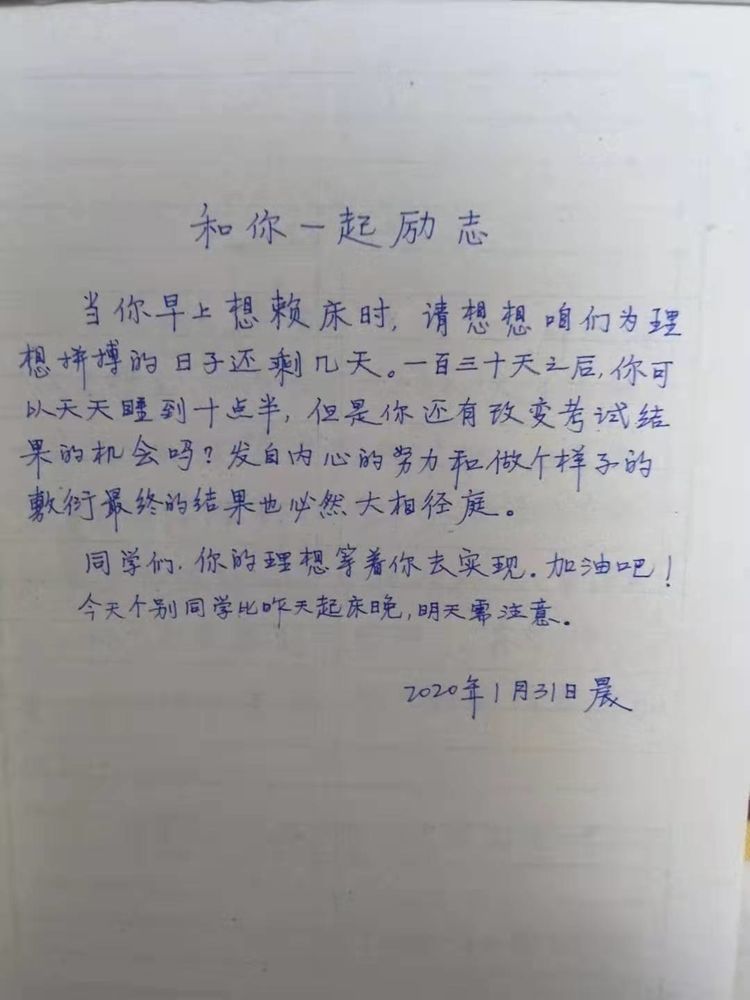 和你一起励志
当你早上想赖床时,请想想咱们为理
想拼搏的日子还剩几天。一百三十天之后,你可
以天天睡到十点半,但是你还有改变考试结
果的机会吗?发自内心的努力和做个样子的
敷衍最终的结果也必然大相径庭。
同学们,你的理想等着你去实现。加油吧!
今天个别同学比昨天起床晚,明天需注意。
2020年1月31日晨